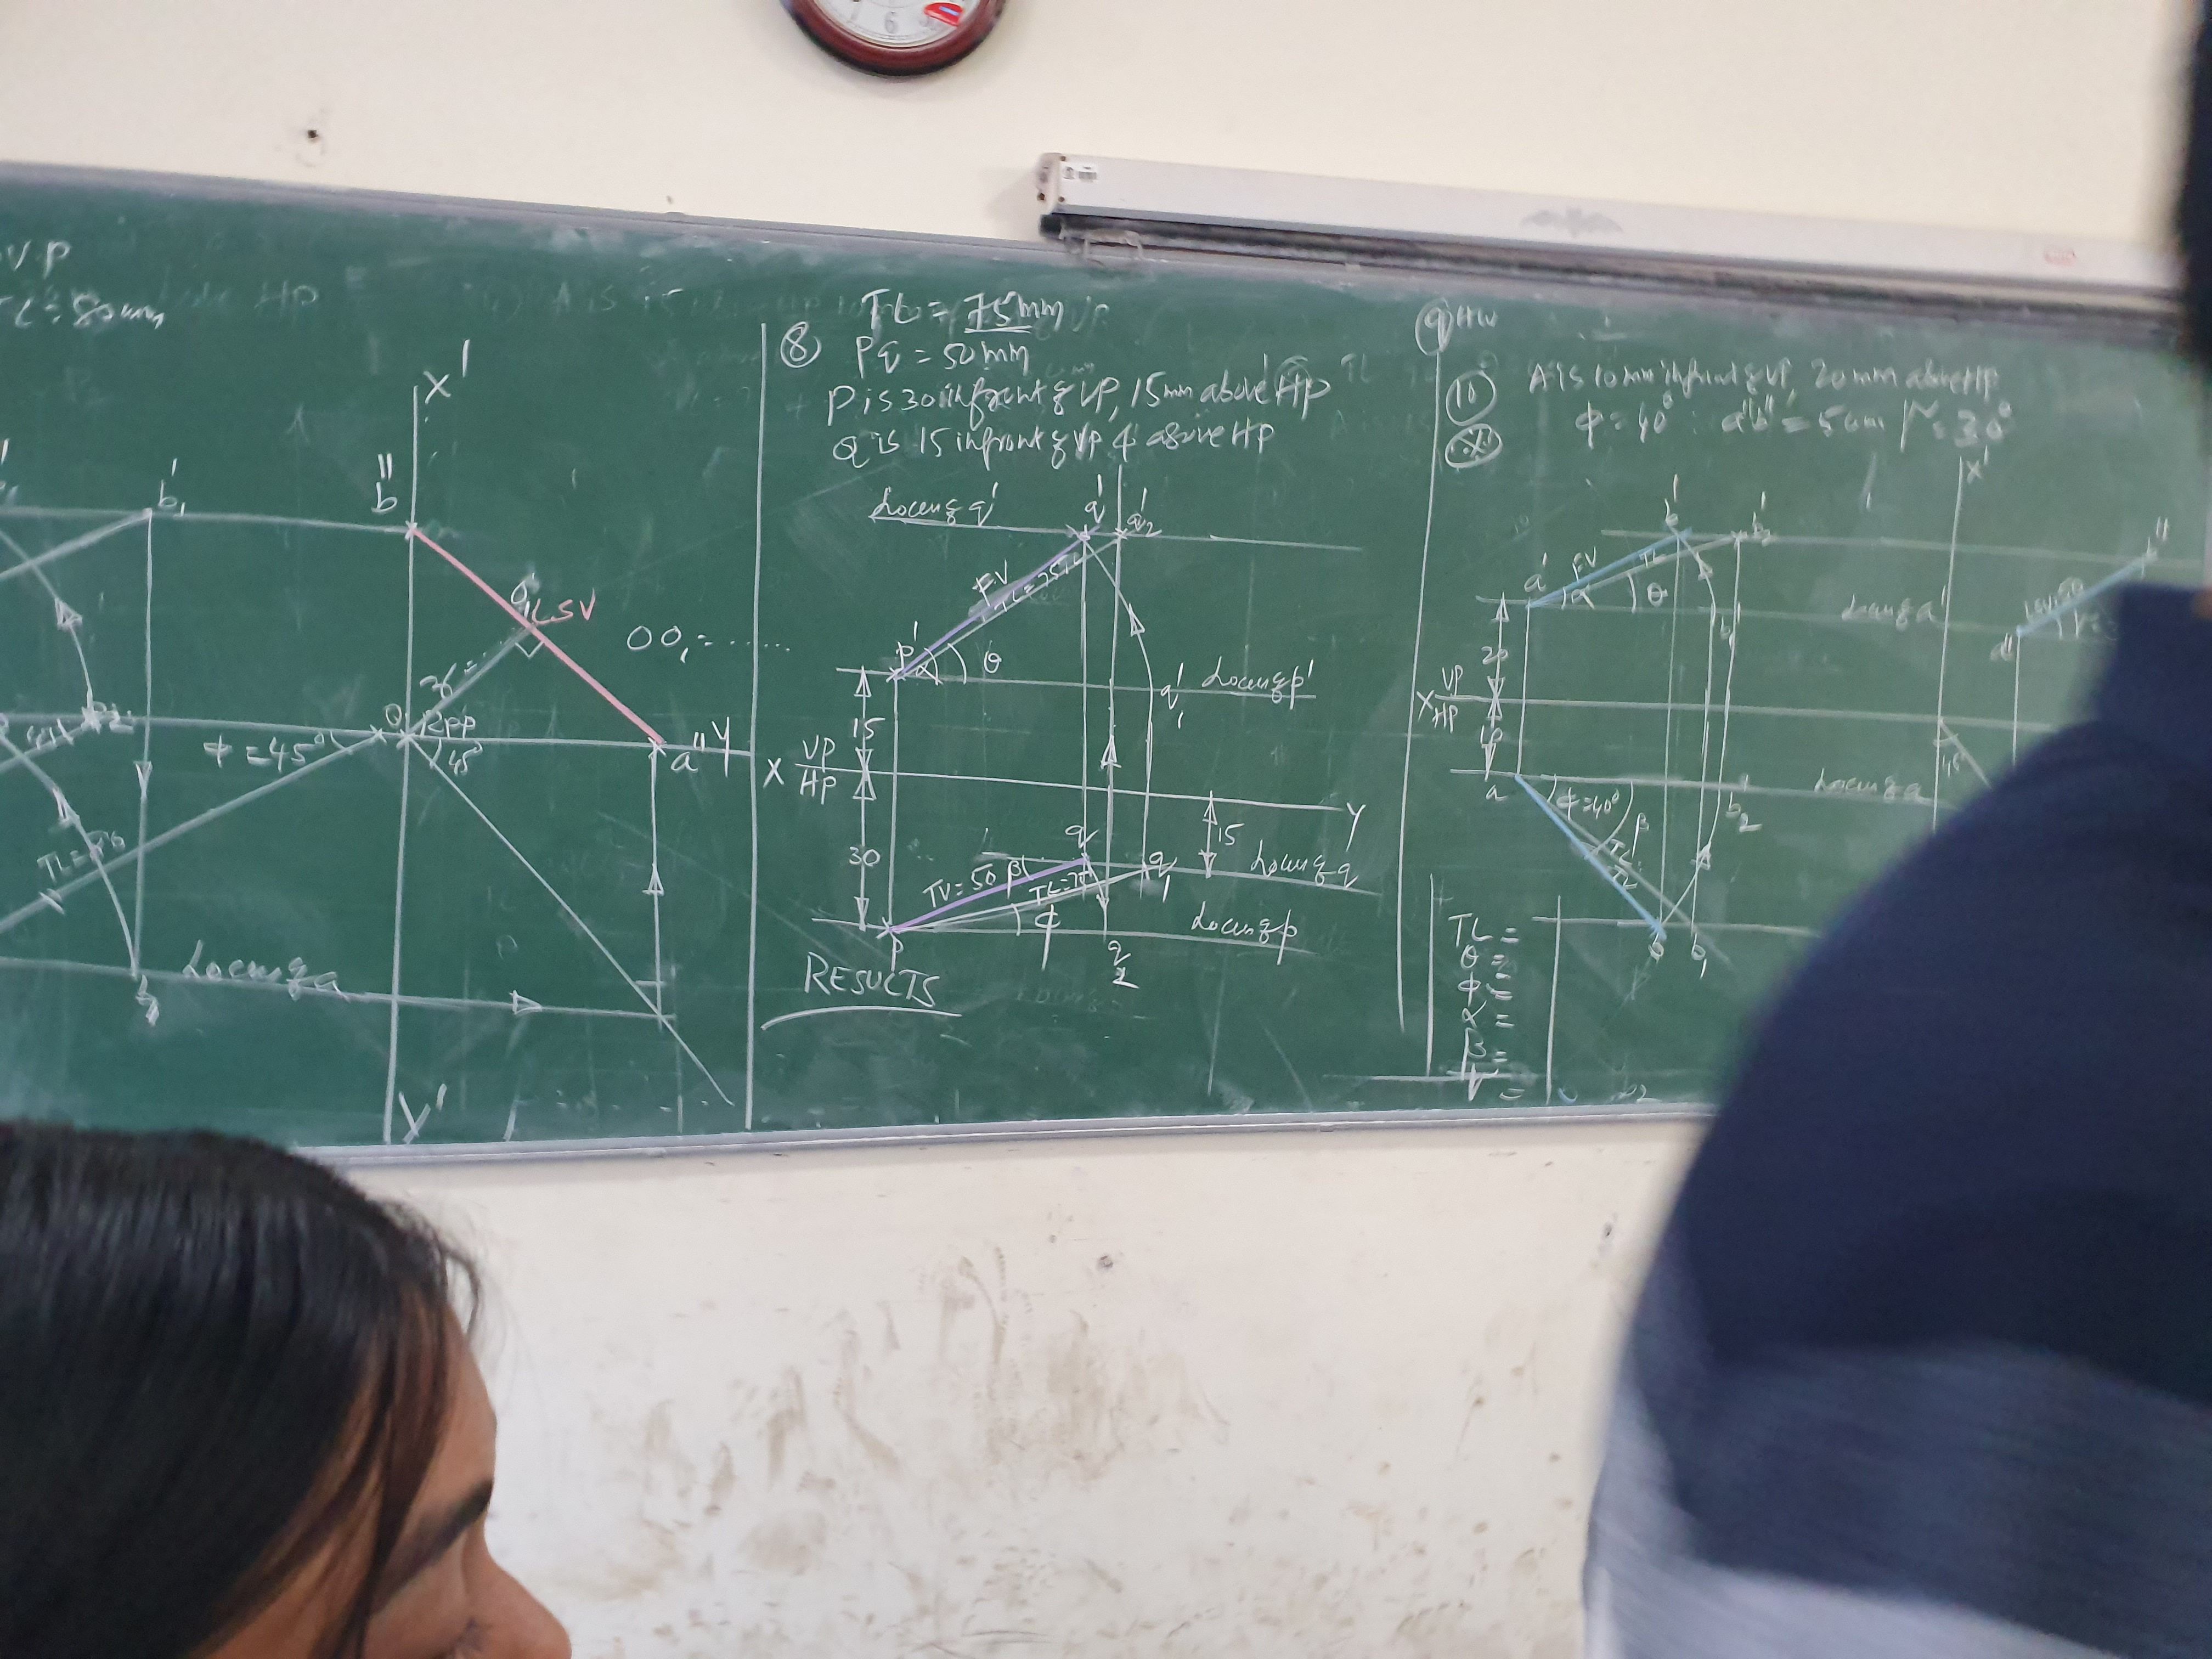 V.P
TL=80mm
X'
b'₁
b"
O₁
LSV
OO₁ = ......
O
φ = 45°
45°
a"
Y
Locus of a
Y'
⑧
TL = 75mm
pq = 50mm
P is 30 infront of VP, 15mm above HP
Q is 15 infront of VP & above HP
Locus of q'
q'
q'₂
FV
TL=75
p'
α
θ
q'₁
Locus of p'
15
X
VP
HP
Y
30
q
15
TV=50
β
TL=75
q₁
Locus of q
φ
p
q₂
Locus of p
RESULTS
⑨ HW
⑩
A is 10mm infront of VP, 20mm above HP
φ = 40° a"b" = 5cm
X'
b'
b'₂
b"
a'
FV
TL
α
θ
Locus of a'
a"
20
VP
X
HP
10
a
φ=40°
β
Locus of a
b₂
45°
TL
b
b₁
TL =
θ =
φ =
α =
β =
6